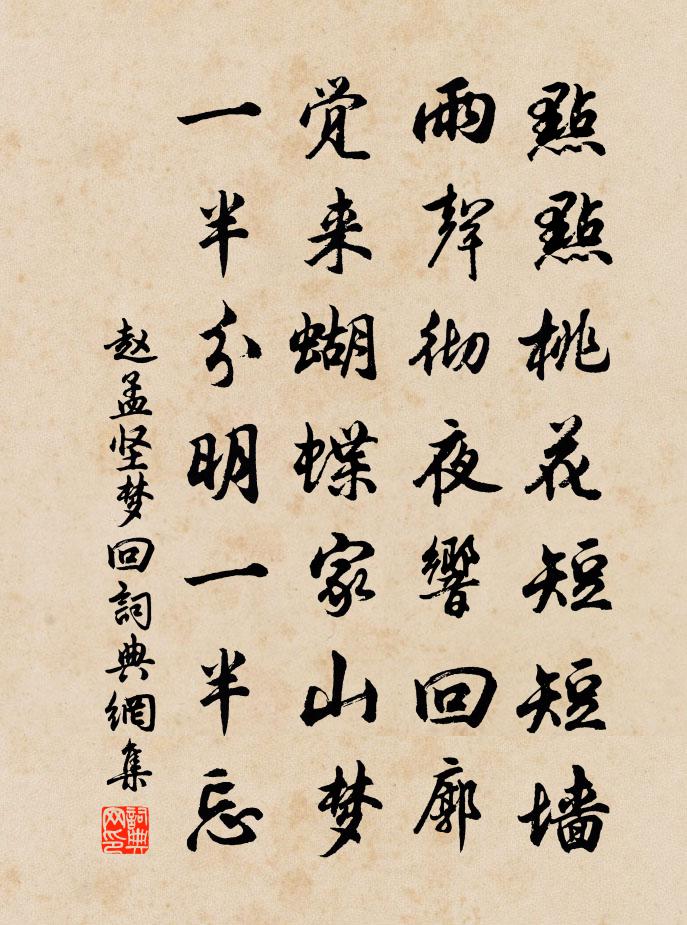 點點桃花短短墻
雨聲彻夜響回廓
觉来蝴蝶家山梦
一半分明一半忘
赵孟坚梦回詞典網集
詞典网印